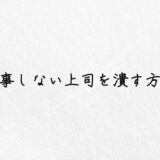 事しない上司を潰す方